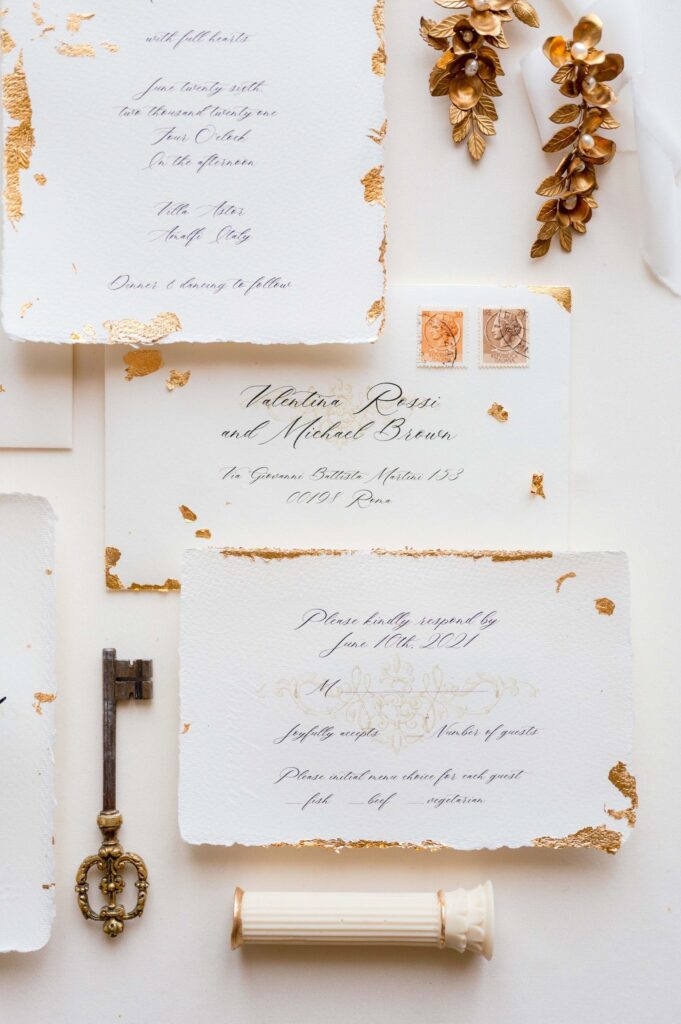 with full hearts
June twenty sixth,
two thousand twenty one
Four O'clock
In the afternoon
Villa Astor
Amalfi Italy
Dinner & dancing to follow
Valentina Rossi
and Michael Brown
Via Giovanni Battista Martini 153
00198 Roma
Please kindly respond by
June 10th, 2021
M
Joyfully accepts Number of guests
Please initial menu choice for each guest
fish beef vegetarian